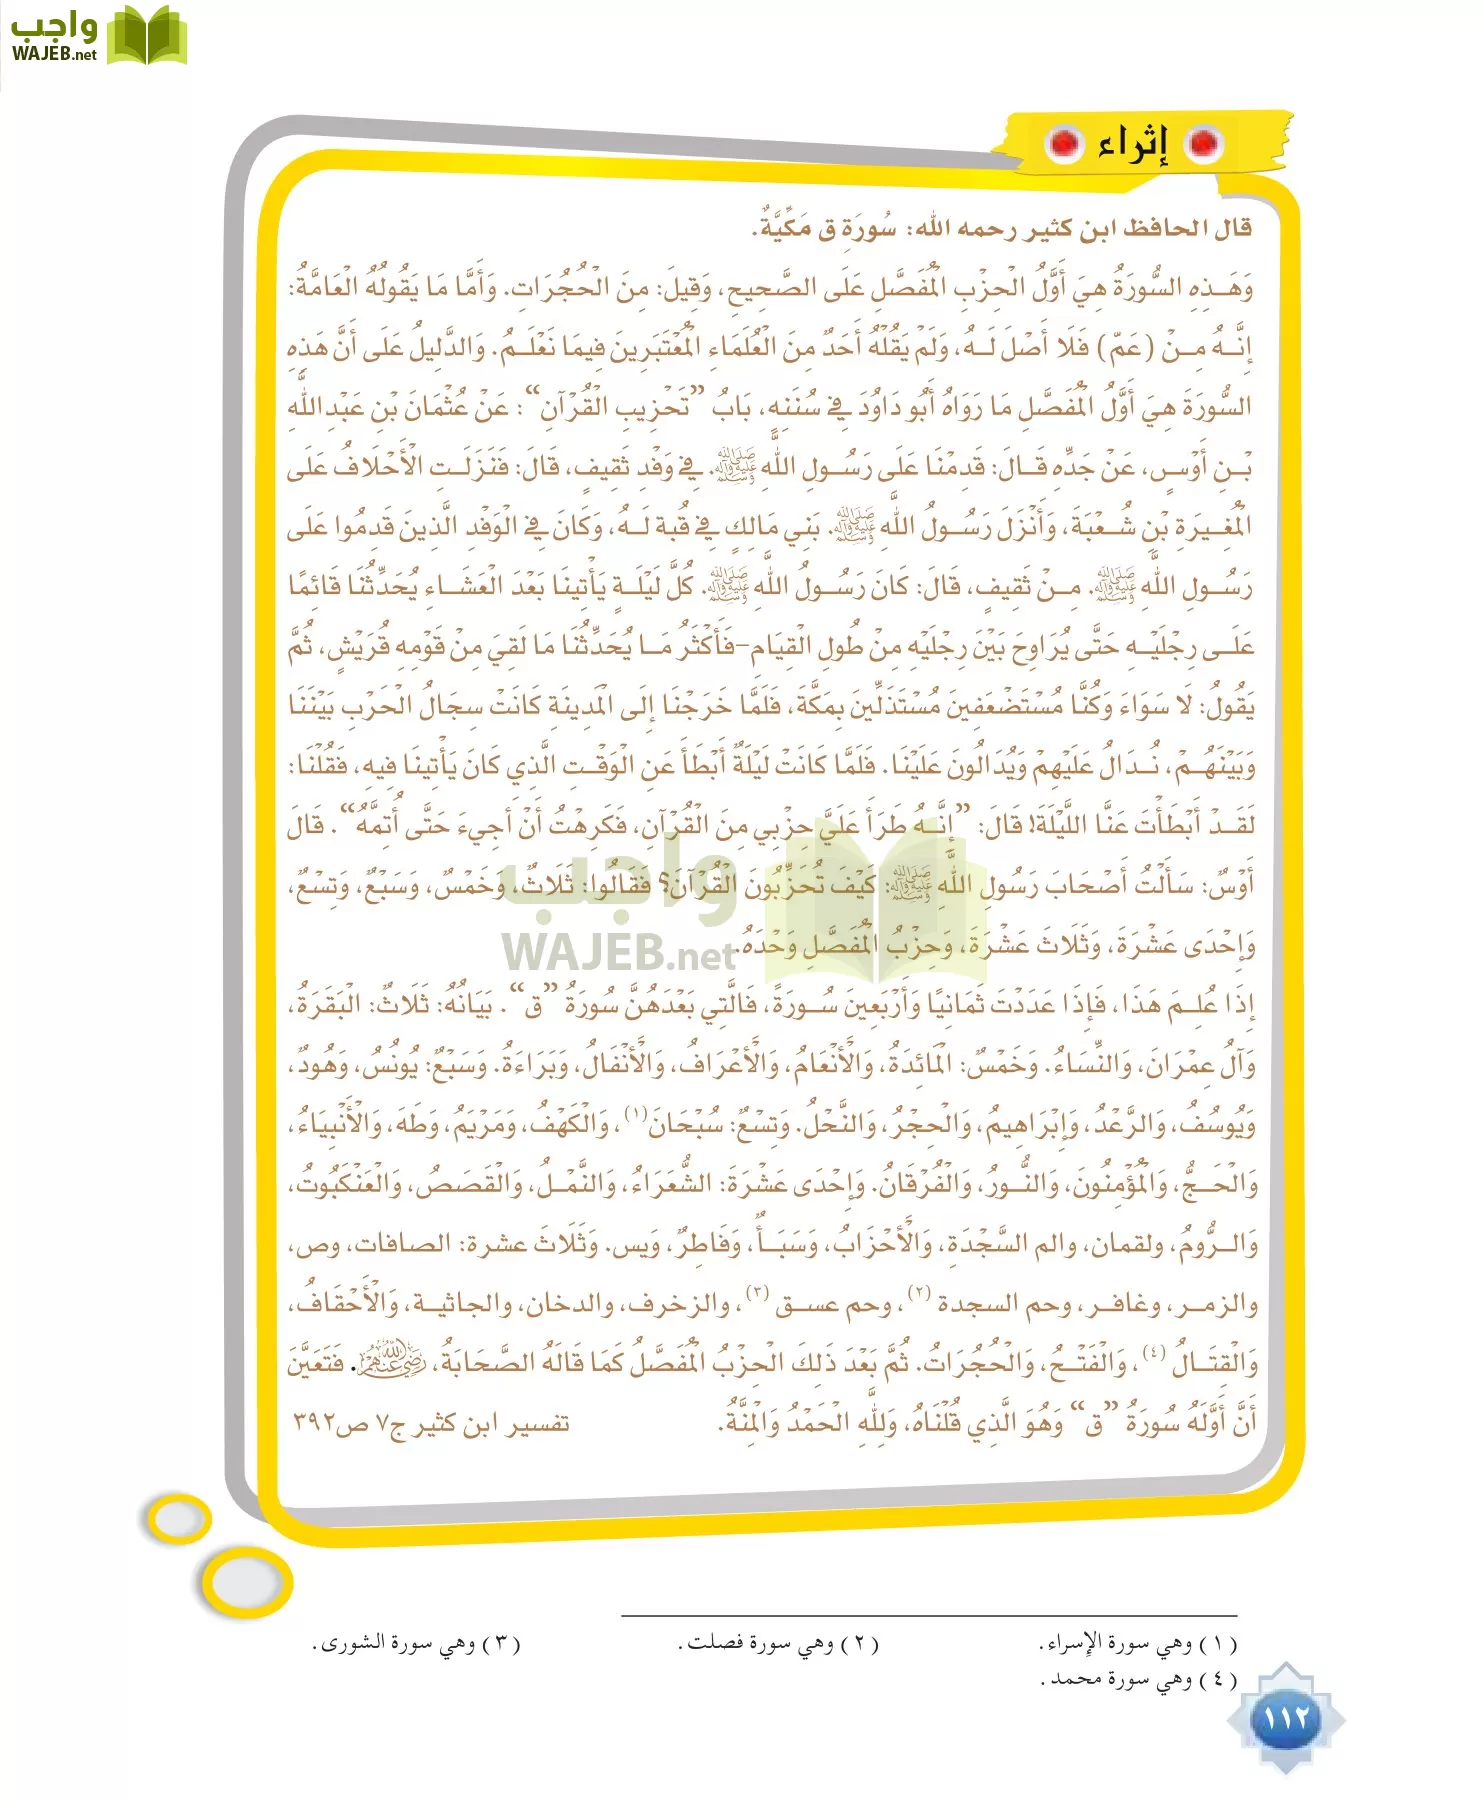 واجب
WAJEB.net
إثراء
قال الحافظ ابن كثير رحمه الله: سُورَةِ ق مَكِّيَّةٌ.
وَهَـذِهِ السُّورَةُ هِيَ أَوَّلُ الْحِزْبِ الْمُفَصَّلِ عَلَى الصَّحِيحِ، وَقِيلَ: مِنَ الْحُجُرَاتِ. وَأَمَّا مَا يَقُولُهُ الْعَامَّةُ:
إِنَّـهُ مِـنْ (عَمّ) فَلَا أَصْلَ لَـهُ، وَلَمْ يَقُلْهُ أَحَدٌ مِنَ الْعُلَمَاءِ الْمُعْتَبَرِينَ فِيمَا نَعْلَـمُ. وَالدَّلِيلُ عَلَى أَنَّ هَذِهِ
السُّورَةَ هِيَ أَوَّلُ الْمُفَصَّلِ مَا رَوَاهُ أَبُو دَاوُدَ فِي سُنَنِهِ، بَابُ ”تَحْزِيبِ الْقُرْآنِ“: عَنْ عُثْمَانَ بْنِ عَبْدِاللَّهِ
بْـنِ أَوْسٍ، عَنْ جَدِّهِ قَـالَ: قَدِمْنَا عَلَى رَسُـولِ اللَّهِ ﷺ. فِي وَفْدِ ثَقِيفٍ، قَالَ: فَنَزَلَـتِ الْأَحْلَافُ عَلَى
الْمُغِيرَةِ بْنِ شُـعْبَةَ، وَأَنْزَلَ رَسُـولُ اللَّهِ ﷺ. بَنِي مَالِكٍ فِي قُبة لَـهُ، وَكَانَ فِي الْوَفْدِ الَّذِينَ قَدِمُوا عَلَى
رَسُـولِ اللَّهِ ﷺ. مِـنْ ثَقِيفٍ، قَالَ: كَانَ رَسُـولُ اللَّهِ ﷺ. كُلَّ لَيْلَـةٍ يَأْتِينَا بَعْدَ الْعَشَـاءِ يُحَدِّثُنَا قَائِمًا
عَلَـى رِجْلَيْـهِ حَتَّى يُرَاوِحَ بَيْنَ رِجْلَيْهِ مِنْ طُولِ الْقِيَامِ-فَأَكْثَرُ مَـا يُحَدِّثُنَا مَا لَقِيَ مِنْ قَوْمِهِ قُرَيْشٍ، ثُمَّ
يَقُولُ: لَا سَوَاءَ وَكُنَّا مُسْتَضْعَفِينَ مُسْتَذَلِّينَ بِمَكَّةَ، فَلَمَّا خَرَجْنَا إِلَى الْمَدِينَةِ كَانَتْ سِجَالُ الْحَرْبِ بَيْنَنَا
وَبَيْنَهُـمْ، نُـدَالُ عَلَيْهِمْ وَيُدَالُونَ عَلَيْنَا. فَلَمَّا كَانَتْ لَيْلَةٌ أَبْطَأَ عَنِ الْوَقْـتِ الَّذِي كَانَ يَأْتِينَا فِيهِ، فَقُلْنَا:
لَقَـدْ أَبْطَأْتَ عَنَّا اللَّيْلَةَ! قَالَ: ”إِنَّـهُ طَرَأَ عَلَيَّ حِزْبِي مِنَ الْقُرْآنِ، فَكَرِهْتُ أَنْ أَجِيءَ حَتَّى أُتِمَّهُ“. قَالَ
أَوْسٌ: سَأَلْتُ أَصْحَابَ رَسُولِ اللَّهِ ﷺ: كَيْفَ تُحَزِّبُونَ الْقُرْآنَ؟ فَقَالُوا: ثَلَاثٌ، وَخَمْسٌ، وَسَبْعٌ، وَتِسْعٌ،
وَإِحْدَى عَشْرَةَ، وَثَلَاثَ عَشْرَةَ، وَحِزْبُ الْمُفَصَّلِ وَحْدَهُ.
إِذَا عُلِـمَ هَذَا، فَإِذَا عَدَدْتَ ثَمَانِيًا وَأَرْبَعِينَ سُـورَةً، فَالَّتِي بَعْدَهُنَّ سُورَةُ ”ق“. بَيَانُهُ: ثَلَاثٌ: الْبَقَرَةُ،
وَآلُ عِمْرَانَ، وَالنِّسَاءُ. وَخَمْسٌ: الْمَائِدَةُ، وَالْأَنْعَامُ، وَالْأَعْرَافُ، وَالْأَنْفَالُ، وَبَرَاءَةُ. وَسَبْعٌ: يُونُسُ، وَهُودٌ،
وَيُوسُفُ، وَالرَّعْدُ، وَإِبْرَاهِيمُ، وَالْحِجْرُ، وَالنَّحْلُ. وَتِسْعٌ: سُبْحَانَ(١)، وَالْكَهْفُ، وَمَرْيَمُ، وَطَهَ، وَالْأَنْبِيَاءُ،
وَالْحَـجُّ، وَالْمُؤْمِنُونَ، وَالنُّـورُ، وَالْفُرْقَانُ. وَإِحْدَى عَشْـرَةَ: الشُّعَرَاءُ، وَالنَّمْـلُ، وَالْقَصَصُ، وَالْعَنْكَبُوتُ،
وَالـرُّومُ، ولقمان، والم السَّجْدَةِ، وَالْأَحْزَابُ، وَسَبَـأٌ، وَفَاطِرٌ، وَيس. وَثَلَاثَ عشرة: الصافات، وص،
والزمـر، وغافـر، وحم السـجدة (٢)، وحم عسـق (٣)، والزخرف، والدخان، والجاثية، وَالْأَحْقَافُ،
وَالْقِتَـالُ (٤)، وَالْفَتْـحُ، وَالْحُجُرَاتُ. ثُمَّ بَعْدَ ذَلِكَ الْحِزْبُ الْمُفَصَّلُ كَمَا قَالَهُ الصَّحَابَةُ، رضي الله عنهم. فَتَعَيَّنَ
أَنَّ أَوَّلَهُ سُورَةُ ”ق“ وَهُوَ الَّذِي قُلْنَاهُ، وَلِلَّهِ الْحَمْدُ وَالْمِنَّةُ. تفسير ابن كثير ج٧ ص٣٩٢
واجب
WAJEB.net
(١) وهي سورة الإسراء. (٢) وهي سورة فصلت. (٣) وهي سورة الشورى.
(٤) وهي سورة محمد.
١١٢